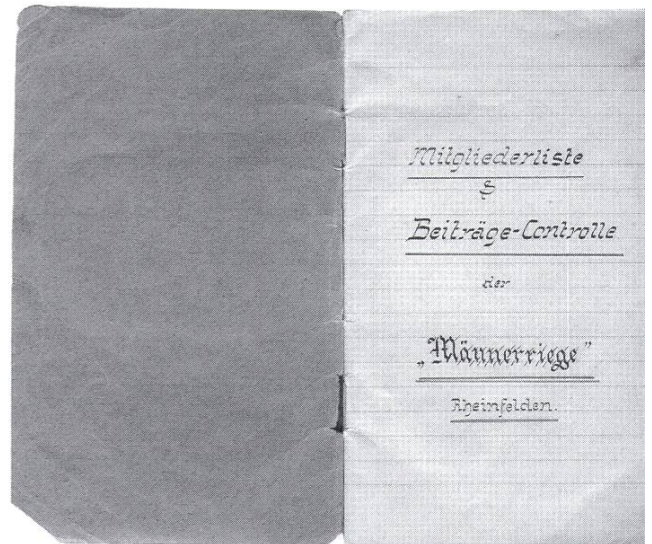 Mitgliederliste
&
Beiträge-Controlle
der
„Männerriege"
Rheinfelden.